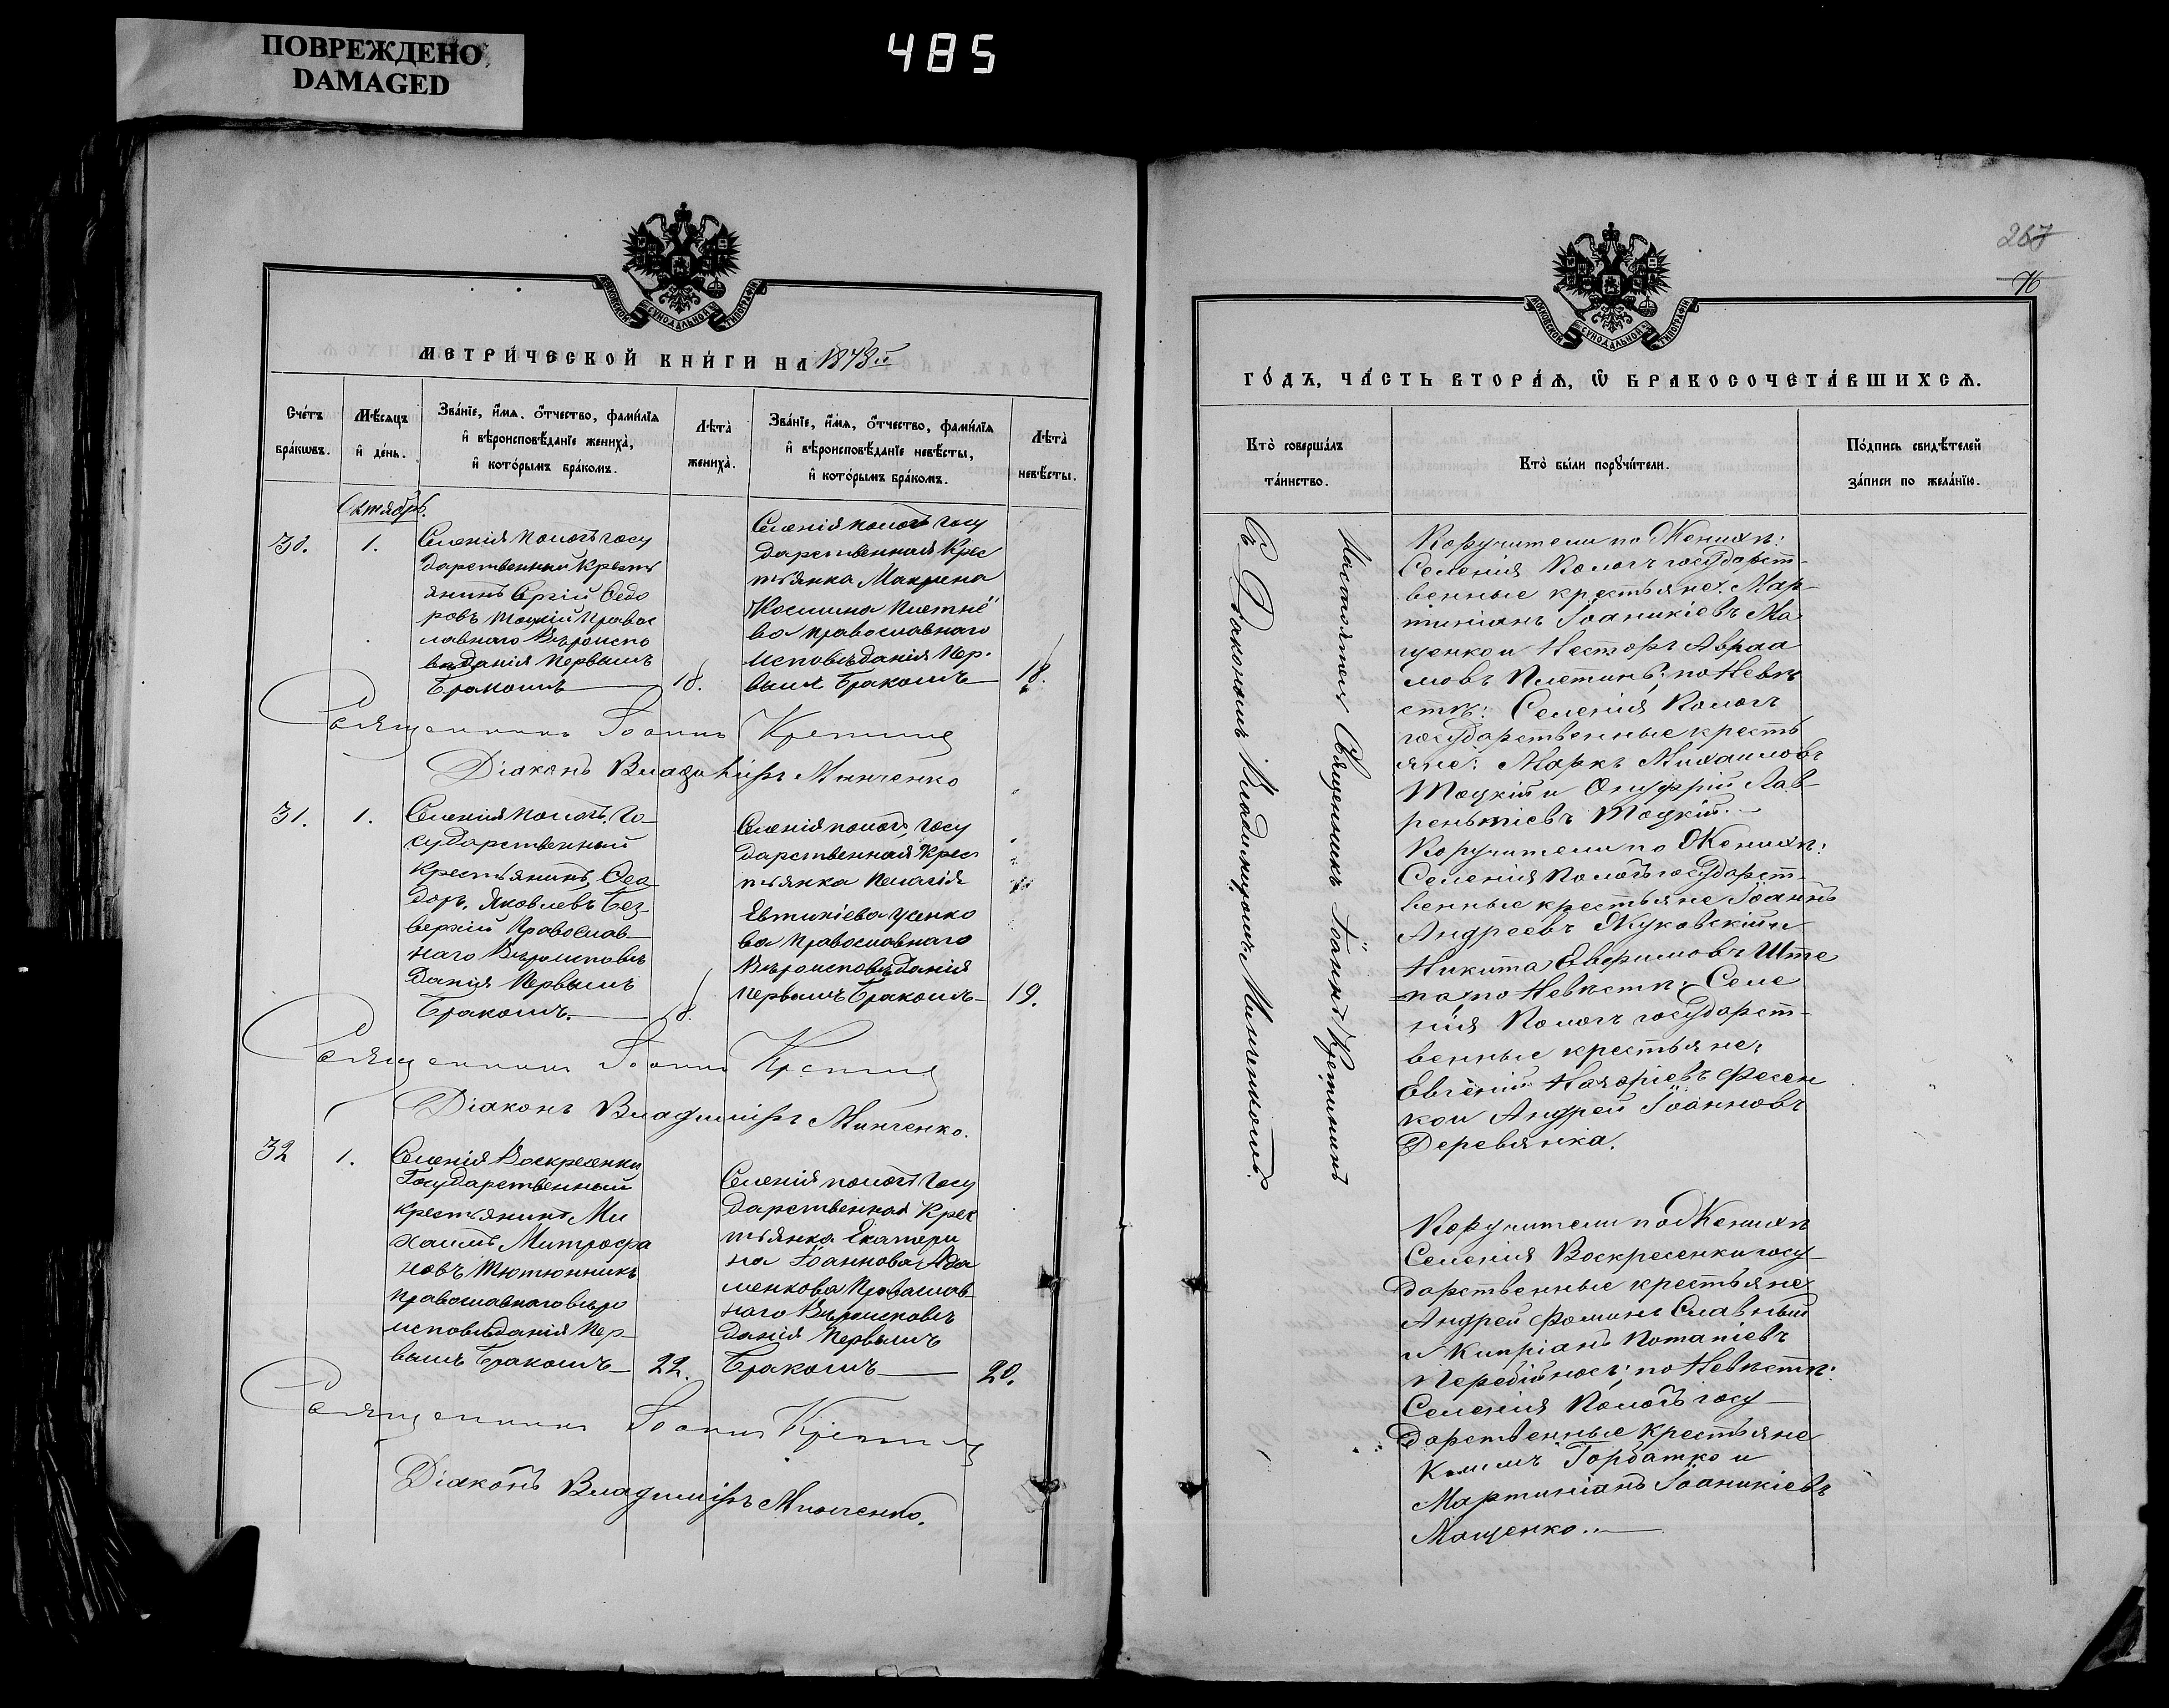 ПОВРЕЖДЕНО
DAMAGED
485
МОСКОВСКОЙ СѴНОДАЛЬНОЙ ТИПОГРАФІИ
МЕТРИ́ЧЕСКОЙ КНИ́ГИ НА 1873й
Сче́тъ бра́кѡвъ.
Мѣ́сяцъ и҆ де́нь.
Зва́нїе, и҆́мя, ѻ҆́тчество, фами́лїя
и҆ вѣроисповѣ́данїе жениха̀,
и҆ кото́рымъ бра́комъ.
Лѣта̀ жениха̀.
Зва́нїе, и҆́мя, ѻ҆́тчество, фами́лїя
и҆ вѣроисповѣ́данїе невѣ́сты,
и҆ кото́рымъ бра́комъ.
Лѣта̀ невѣ́сты.
Октябрь.
30.
1.
Селенія Пологъ госу
дарственный Кресть
янинъ Сергій Ѳедо
ровъ Тоцкій Правос
лавнаго Вѣроиспо
вѣданія Первымъ
Бракомъ
18.
Селенія Пологъ Госу
дарственная Крес
тьянка Макрина
Космина Плетнё
ва Православнаго
Исповѣданія Пер-
вымъ Бракомъ
18.
Священникъ Іоаннъ
Діаконъ Владиміръ Минченко
31.
1.
Селенія Пологъ Го
сударственный
Крестьянинъ, Ѳео
доръ, Яковлевъ Без
верхій Православ-
наго Вѣроисповѣ
данія Первымъ
Бракомъ.
18.
Селенія Пологъ Госу
дарственная Крес
тьянка Пелагія
Евтихіева Усенко
ва Православнаго
Вѣроисповѣданія
Первымъ Бракомъ
19.
Священникъ Іоаннъ
Діаконъ Владиміръ Минченко.
32
1.
Селенія Воскресенки
Государственный
Крестьянинъ Ми
хаилъ Митрофа
новъ Тютюнникъ
Православнаго вѣро
исповѣданія Пер-
вымъ Бракомъ
22.
Селенія Пологъ Госу
дарственная Крес
тьянка Екатери
на Іоаннова Ада
менкова Православ-
наго Вѣроисповѣ
данія Первымъ
Бракомъ
20.
Священникъ Іоаннъ
Діаконъ Владиміръ Минченко.
267
76
МОСКОВСКОЙ СѴНОДАЛЬНОЙ ТИПОГРАФІИ
ГО́ДЪ, ЧА́СТЬ ВТОРА́Ѧ, Ѿ БРАКОСОЧЕТА́ВШИХСѦ.
Кто̀ соверша́лъ
та́инство.
Кто̀ бы́ли порꙋчи́тели.
По́дпись свидѣ́телей
за́писи по жела́нїю.
Настоятель Священникъ Іоаннъ
Съ Діакономъ Владиміромъ Минченкомъ.
Поручители по Женихѣ:
Селенія Пологъ государст-
венные крестьяне: Мар-
тиніанъ Іоаникіевъ Ма
щенко и Несторъ Авраа
мовъ Плетинь; по Невѣ
стѣ: Селенія Пологъ
государственные кресть
яне: Маркъ Михаиловъ
Тоцкій и Онуфрій Лав-
рентіевъ Тоцкій.
Поручители по Женихѣ:
Селенія Пологъ государст-
венные крестьяне Іоаннъ
Андреевъ Жуковскій и
Никита ЕвфимовъШте
па; по Невѣстѣ: Селе
нія Пологъ государст-
венные крестьяне:
Евгеній Назаріевъ Фесен
ко и Андрей Іоанновъ
Деревянка.
Поручители по Женихѣ
Селенія Воскресенки госу
дарственные крестьяне
Андрей Фоминъ Славный
и Кипріанъ Потапіевъ
по Невѣстѣ:
Селенія Пологъ госу
дарственные крестьяне
Горбатко и
Мартиніанъ Іоаникіевъ
Мащенко.